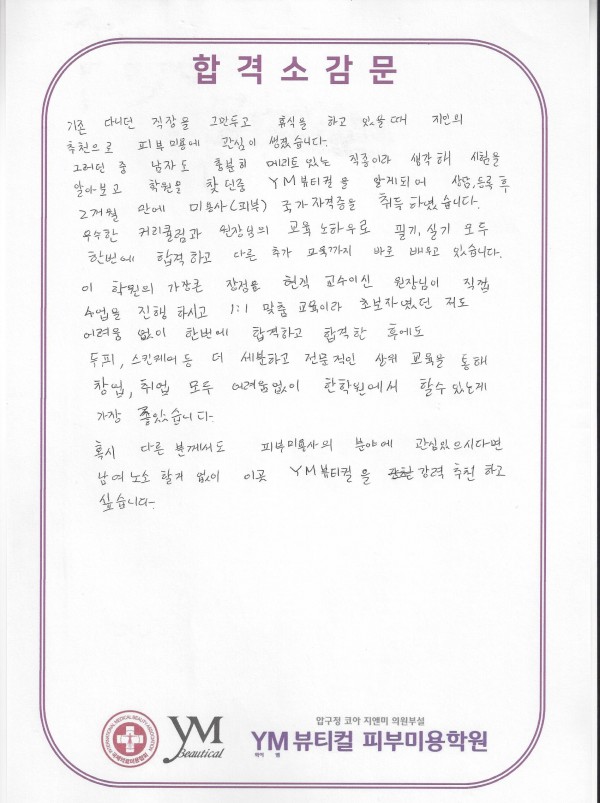 합격소감문
기존 다니던 직장을 그만두고 휴식을 하고 있을때 지인의
추천으로 피부미용에 관심이 생겼습니다.
그러던 중 남자도 충분히 메리트 있는 직종이라 생각해 시험을
알아보고 학원을 찾던중 YM뷰티컬을 알게되어 상담,등록 후
2개월 만에 미용사(피부) 국가자격증을 취득하였습니다.
우수한 커리큘럼과 원장님의 교육 노하우로 필기,실기 모두
한번에 합격하고 다른 추가 교육까지 바로 배우고 있습니다.
이 학원의 가장큰 장점은 현직 교수이신 원장님이 직접
수업을 진행 하시고 1:1 맞춤 교육이라 초보자였던 저도
어려움 없이 한번에 합격하고 합격한 후에도
두피, 스킨케어 등 더 세분하고 전문적인 상위 교육을 통해
창업, 취업 모두 어려움없이 한학원에서 할수 있는게
가장 좋았습니다.
혹시 다른 분께서도 피부미용사의 분야에 관심있으시다면
남여노소 할거 없이 이곳 YM뷰티컬을 강력 추천 하고
싶습니다.
INTERNATIONAL MEDICAL BEAUTY ASSOCIATION
국제의료미용협회
YM
Beautical
압구정 코아 지앤미 의원부설
YM뷰티컬 피부미용학원
와이 엠